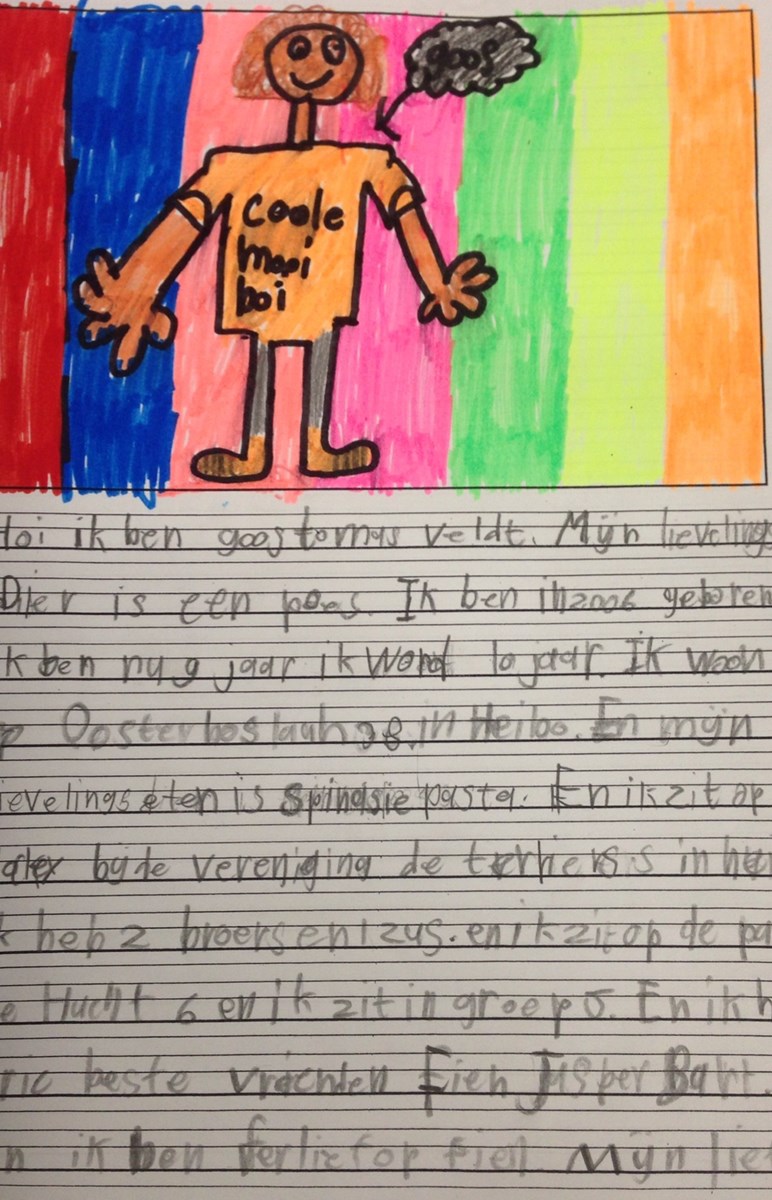 goos
coole
mooi
boi
Hoi ik ben goos tomas veldt. Mijn lievelings
Dier is een poes. Ik ben in 2006 geboren
k ben nu 9 jaar ik word 10 jaar. Ik woon
p Oosterboslaan 38 in Heiloo. En mijn
ievelings eten is spinasie pasta. En ik zit op
by de vereniging de in
k heb 2 broers en 1 zus. en ik zit op de pa
e Hucht 6 en ik zit in groep 5. En ik h
rie beste Fien Jasper Bart.
n ik ben ferlief op fien Mijn lie